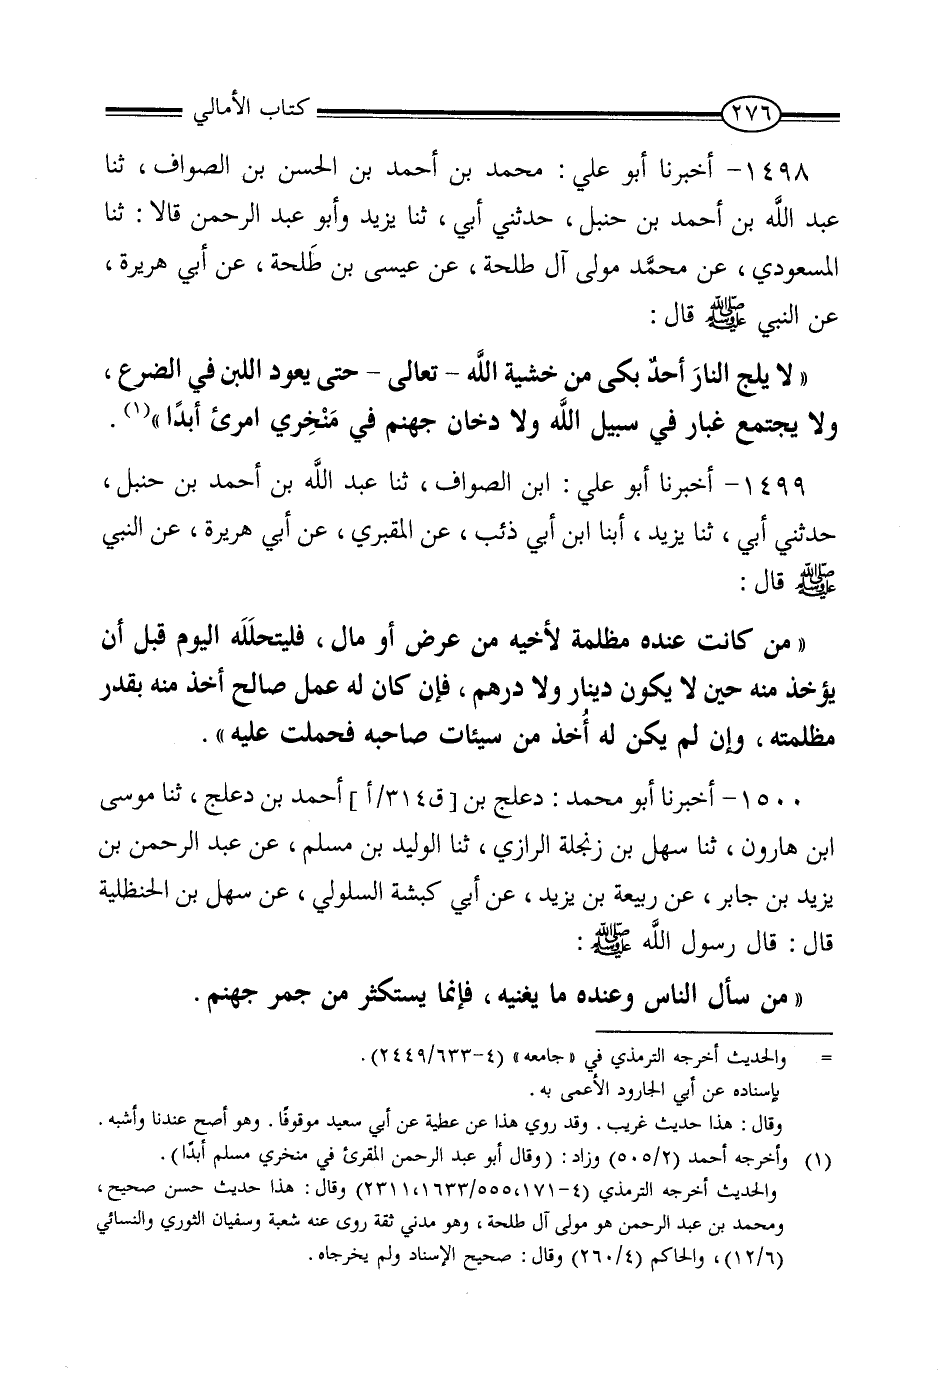 ٢٧٦ كتاب الأمالي
١٤٩٨- أخبرنا أبو علي : محمد بن أحمد بن الحسن بن الصواف ، ثنا
عبد اللَّه بن أحمد بن حنبل ، حدثني أبي ، ثنا يزيد وأبو عبد الرحمن قالا : ثنا
المسعودي ، عن محمَّد مولى آل طلحة ، عن عيسى بن طَلحة ، عن أبي هريرة ،
عن النبي ﷺ قال :
« لا يلج النارَ أحدٌ بكى من خشية اللَّه - تعالى - حتى يعود اللبن في الضرع ،
ولا يجتمع غبار في سبيل اللَّه ولا دخان جهنم في مَنْخِري امرئ أبدًا »(١) .
١٤٩٩- أخبرنا أبو علي : ابن الصواف ، ثنا عبد اللَّه بن أحمد بن حنبل ،
حدثني أبي ، ثنا يزيد ، أبنا ابن أبي ذئب ، عن المقبري ، عن أبي هريرة ، عن النبي
ﷺ قال :
« من كانت عنده مظلمة لأخيه من عرض أو مال ، فليتحلَلَه اليوم قبل أن
يؤخذ منه حين لا يكون دينار ولا درهم ، فإن كان له عمل صالح أخذ منه بقدر
مظلمته ، وإن لم يكن له أُخذ من سيئات صاحبه فحملت عليه » .
١٥٠٠- أخبرنا أبو محمد : دعلج بن [ ق٣١٤/أ ] أحمد بن دعلج ، ثنا موسى
ابن هارون ، ثنا سهل بن زنجلة الرازي ، ثنا الوليد بن مسلم ، عن عبد الرحمن بن
يزيد بن جابر ، عن ربيعة بن يزيد ، عن أبي كبشة السلولي ، عن سهل بن الحنظلية
قال : قال رسول اللَّه ﷺ :
« من سأل الناس وعنده ما يغنيه ، فإنما يستكثر من جمر جهنم .
= والحديث أخرجه الترمذي في « جامعه » (٤-٢٤٤٩/٦٣٣) .
بإسناده عن أبي الجارود الأعمى به .
وقال : هذا حديث غريب . وقد روي هذا عن عطية عن أبي سعيد موقوفًا . وهو أصح عندنا وأشبه .
(١) وأخرجه أحمد (٥٠٥/٢) وزاد : (وقال أبو عبد الرحمن المقرئ في منخري مسلم أبدًا) .
والحديث أخرجه الترمذي (٤-١٧١،٥٥٥/١٦٣٣،٢٣١١) وقال : هذا حديث حسن صحيح ،
ومحمد بن عبد الرحمن هو مولى آل طلحة ، وهو مدني ثقة روى عنه شعبة وسفيان الثوري والنسائي
(١٢/٦) ، والحاكم (٢٦٠/٤) وقال : صحيح الإسناد ولم يخرجاه .